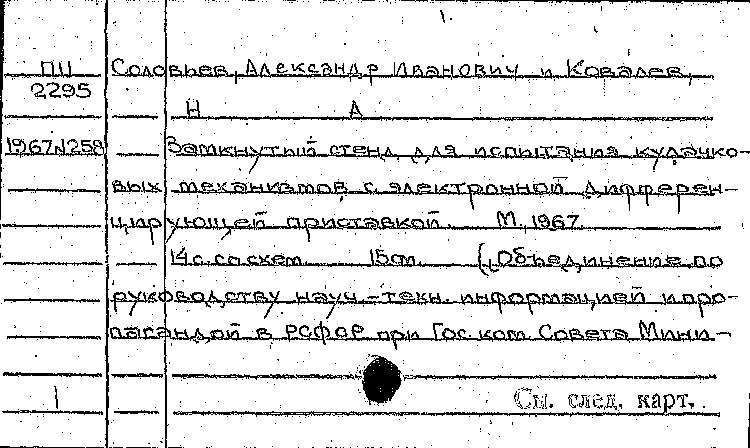 1.
ПП Соловьев, Александр Иванович и Ковалев,
2295
Н А
1967N258 Замкнутый стенд для испытания кулачко-
вых механизмов с электронной дифферен-
цирующей приставкой. М, 1967.
14 с. со схем. 15 см. (Объединение по
руководству науч.-техн. информацией и про-
пагандой в РСФСР при Гос. ком. Совета Мини-
1 См. след. карт.